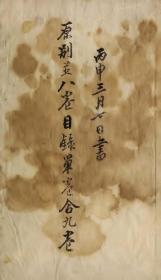 丙申三月七日書
原刻並八卷目錄單壹卷合九卷